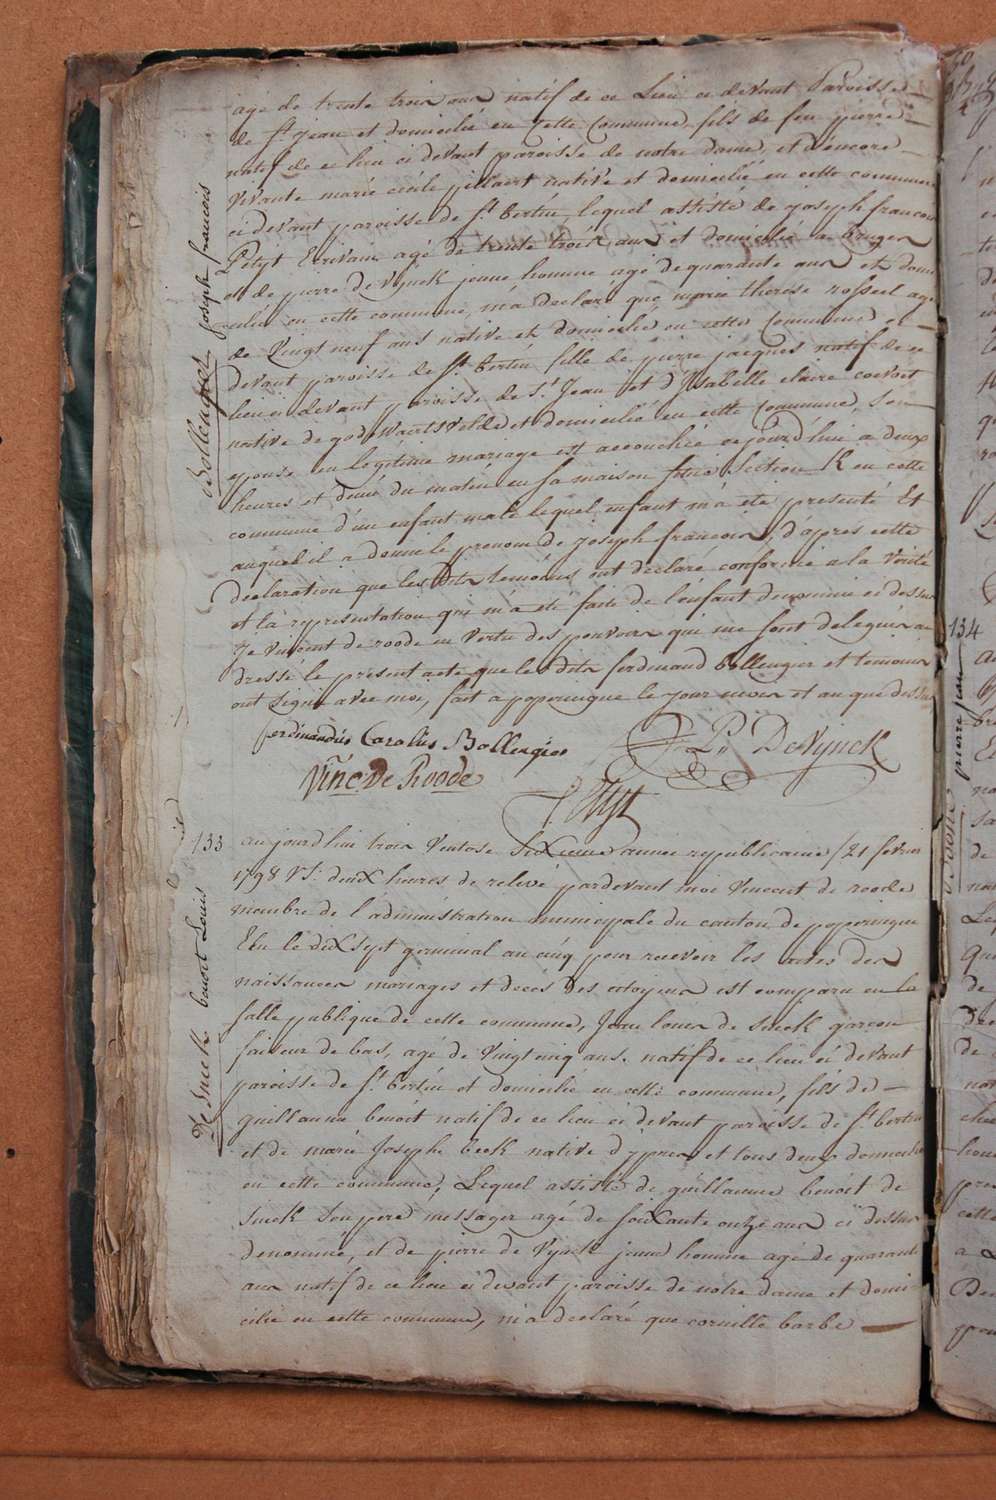 agé de trente trois ans natif de ce Lieu ci devant Paroisse
de St jean et domicilié en Cette Commune, fils de feu pierre
natif de ce lieu ci devant paroisse de notre dame, et d'encore
vivante marie cecile pillaert native et domiciliée en cette commune
ci devant paroisse de St bertin, lequel assisté de joseph francois
Petyt Ecrivain agé de trente trois ans et domicilié a bruges
et de pierre de Vynck jeune homme agé de quarante ans et domi
cilié en cette commune, m'a declaré que marie therese rosseel agé
de Vingt neuf ans native et domiciliée en cette Commune ci
devant paroisse de St bertin fille de pierre jacques natif de ce
lieu ci devant paroisse de St Jean et d'Ysabelle claire
native de godswaertsvelde et domiciliée en cette Commune, son
epouse en legitime mariage est accouchée cejourd'hui a deux
heures et demie du matin en sa maison Section K en cette
commune d'un enfant male lequel enfant m'a eté presenté Et
auquel il a donné le prenom de joseph francois, d'apres cette
declaration que les dits temoins ont declaré conforme a la Verité
et la representation qui m'a eté faite de l'enfant denommé ci dessus
Je Vincent de roode en vertu des pouvoirs qui me sont delegués ai
dressé le present acte que les dits ferdinand bollengier et temoins
ont signé avec moi, fait a poperingue le jour mois et an que dessus
ferdinandus Carolus Bollengier
P. DeVynck
Vinc De Roode
Petyt
Bollengier joseph francois
133
aujourd'hui trois Ventose Sixieme année republicaine / 21 fevrier
1798 VS: deux heures de relevé pardevant moi Vincent de roode
membre de l'administration municipale du canton de poperingue
Elu le dix sept germinal an cinq pour recevoir les actes des
naissances mariages et deces des citoyens est comparu en la
salle publique de cette commune, Jean louis de snick garcon
faiseur de bas, agé de Vingtcinq ans. natif de ce lieu ci devant
paroisse de St bertin et domicilié en cette commune, fils de
guillaume benoit natif de ce lieu ci devant paroisse de St bertin
et de marie Josephe beck native d'ypres et tous deux domiciliés
en cette commune, Lequel assisté de guillaume benoit de
snick son pere messager agé de soixante onze ans ci dessus
denommé, et de pierre de Vynck jeune homme agé de quarante
ans natif de ce lieu ci devant paroisse de notre dame et domi-
cilié en cette commune, m'a declaré que cornille barbe
De snick benoit Louis
134
pierre jean